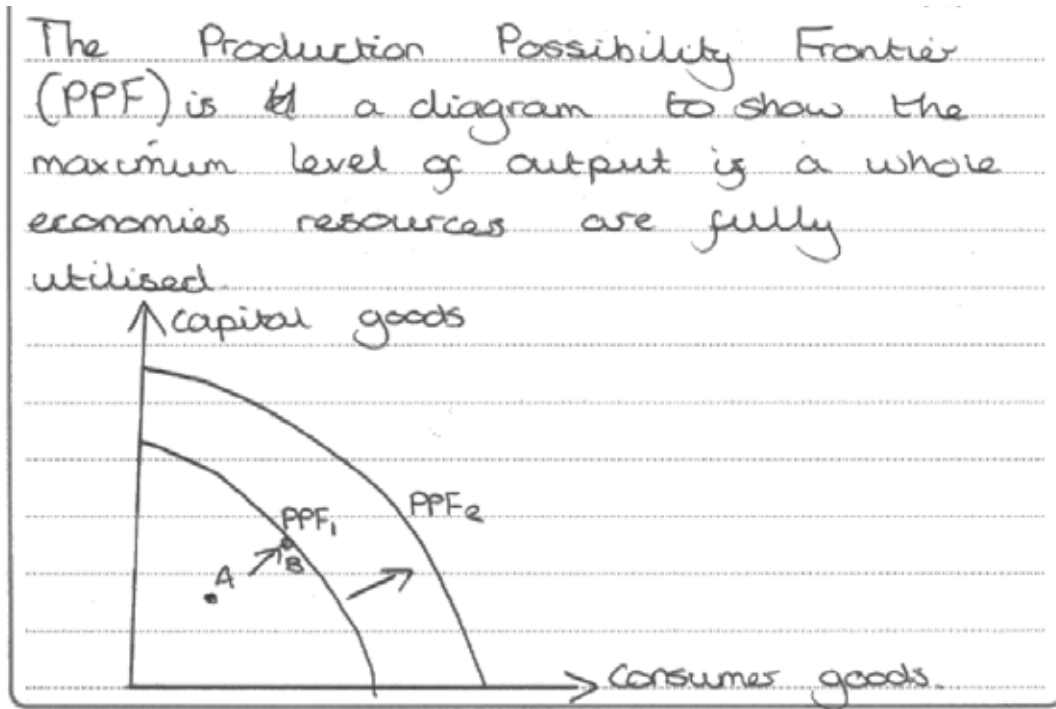 The Production Possibility Frontier
(PPF) is a diagram to show the
maximum level of output if a whole
economies resources are fully
utilised.
capital goods
PPF₁
PPF₂
A
B
consumer goods.